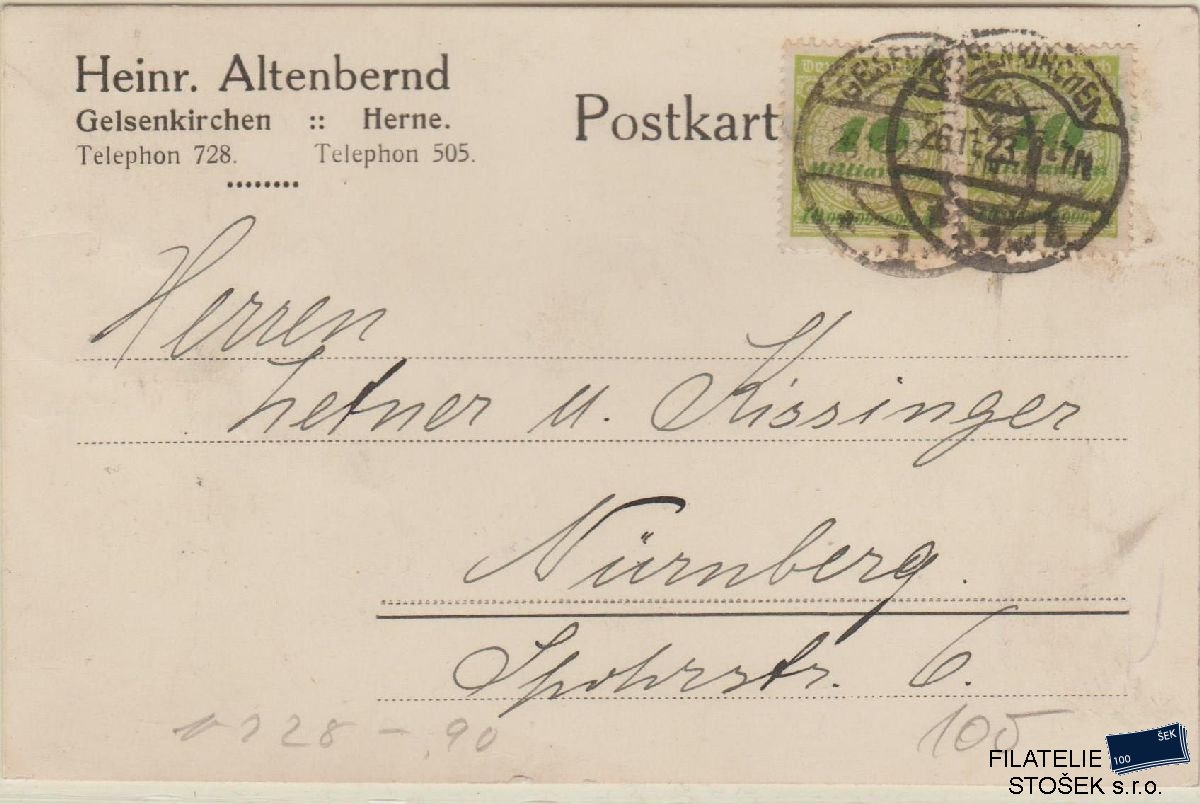 Heinr. Altenbernd
Gelsenkirchen :: Herne.
Telephon 728. Telephon 505.
Postkart
GELSENKIRCHEN
26.11.23. 6-7N
10 10
Herren
Letner u. Kissinger
Nürnberg.
Spohrstr. 6.
28 - 90
105
100 ŠEK
FILATELIE
STOŠEK s.r.o.